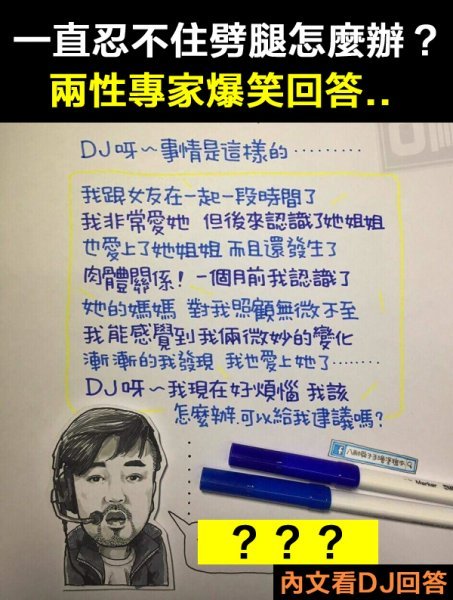 一直忍不住劈腿怎麼辦？
兩性專家爆笑回答..
DJ呀～事情是這樣的………
我跟女友在一起一段時間了
我非常愛她 但後來認識了她姐姐
也愛上了她姐姐 而且還發生了
肉體關係！一個月前我認識了
她的媽媽 對我照顧無微不至
我能感覺到我倆微妙的變化
漸漸的我發現 我也愛上她了……..
DJ呀～我現在好煩惱 我該
怎麼辦.可以給我建議嗎?
Marker
？？？
內文看DJ回答